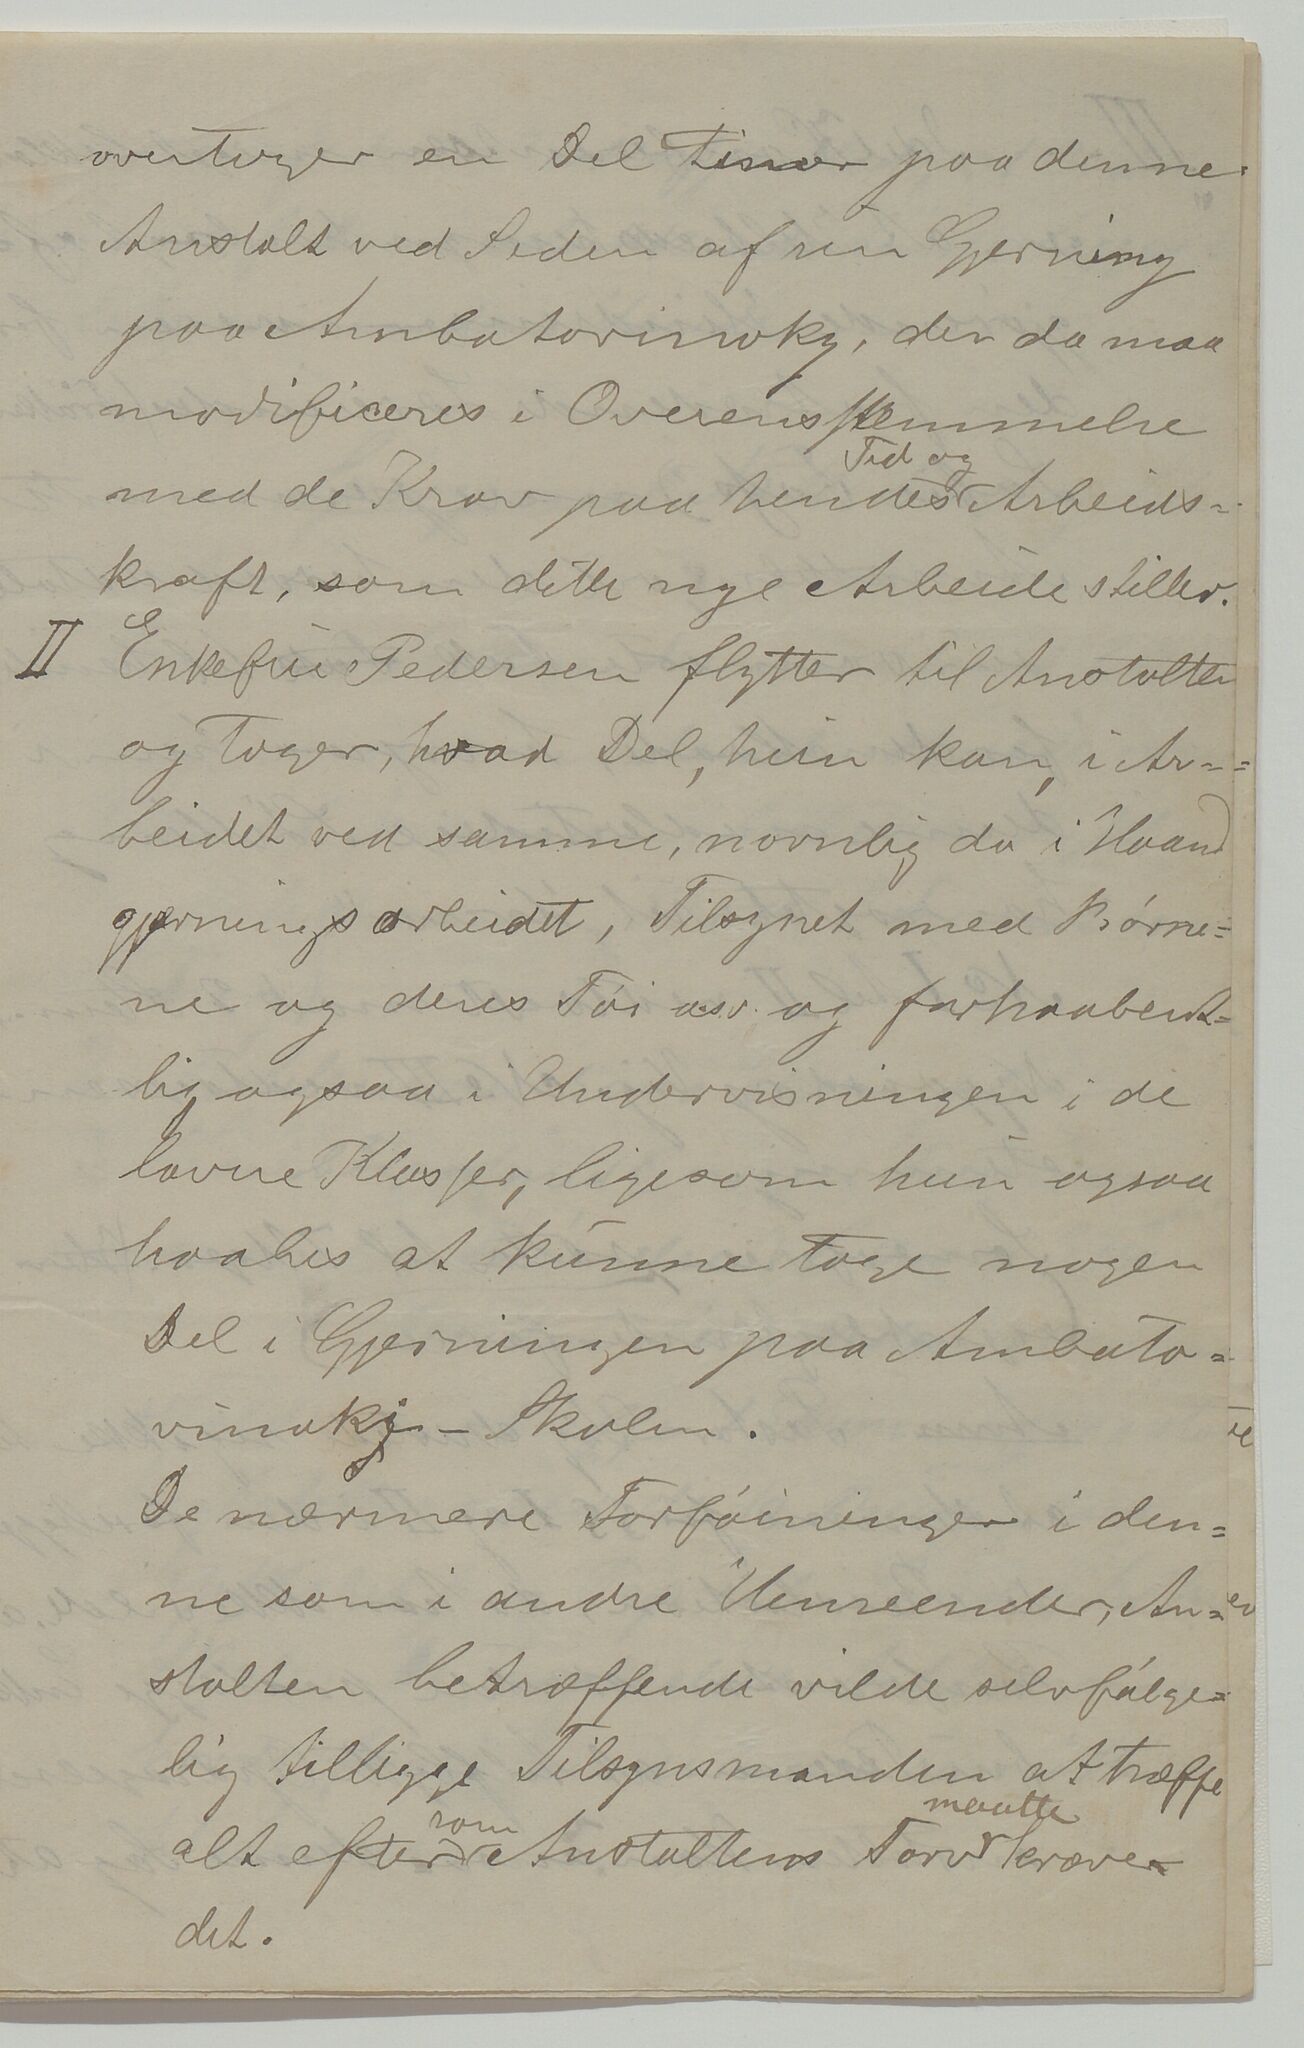 overtager en Del Timer paa denne
Anstalt ved Siden af sin Gjerning
paa Ambatovinaky, der da maa
modificeres i Overensstemmelse
med de Krav paa hendes Tid og Arbeids-
kraft, som dette nye Arbeide stiller.
II Enkefru Pedersen flytter til Anstalten
og tager, hvad Del, hun kan, i Ar-
beidet ved samme, navnlig da i Haand
gjerningsarbeidet, Tilsynet med Børne-
ne og deres Tøi osv. og forhaabent-
lig ogsaa i Undervisningen i de
lavere Klasser, ligesom hun ogsaa
haabes at kunne tage nogen
Del i Gjerningen paa Ambato-
vinaky - Skolen.
De nærmere Forføininger i den-
ne som i andre Henseender, An-
stalten betræffende vilde selvfølge-
lig tilligge Tilsynsmanden at træffe
alt eftersom Anstaltens Tarv maatte kræve
det.